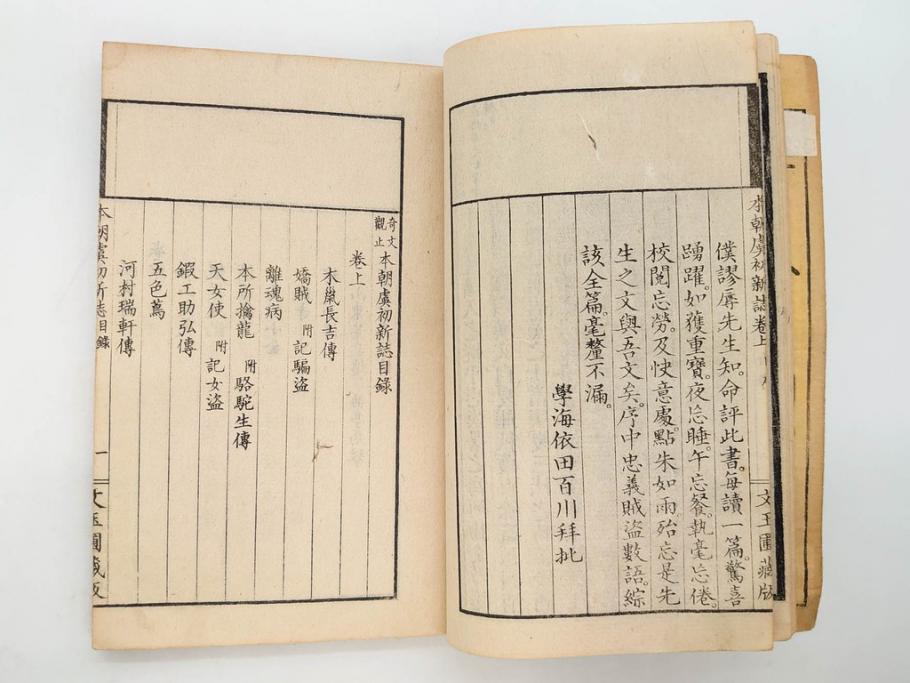 本朝虞初新誌卷上
文玉圃藏版
僕謬辱先生知。命評此書。每讀一篇。驚喜
踴躍。如獲重寶。夜忘睡。午忘餐。執毫忘倦。
校閱忘勞。及快意處。點朱如雨。殆忘是先
生之文與吾文矣。序中忠義賊盜數語。綜
該全篇。毫釐不漏。
學海依田百川拜批
奇文觀止 本朝虞初新誌目錄
卷上
木鼠長吉傳
嬌賊 附記騙盜
離魂病
本所擒龍 附駱駝生傳
天女使 附記女盜
鍜工助弘傳
五色蔦
河村瑞軒傳
本朝虞初新志目錄
一
文玉圃藏版